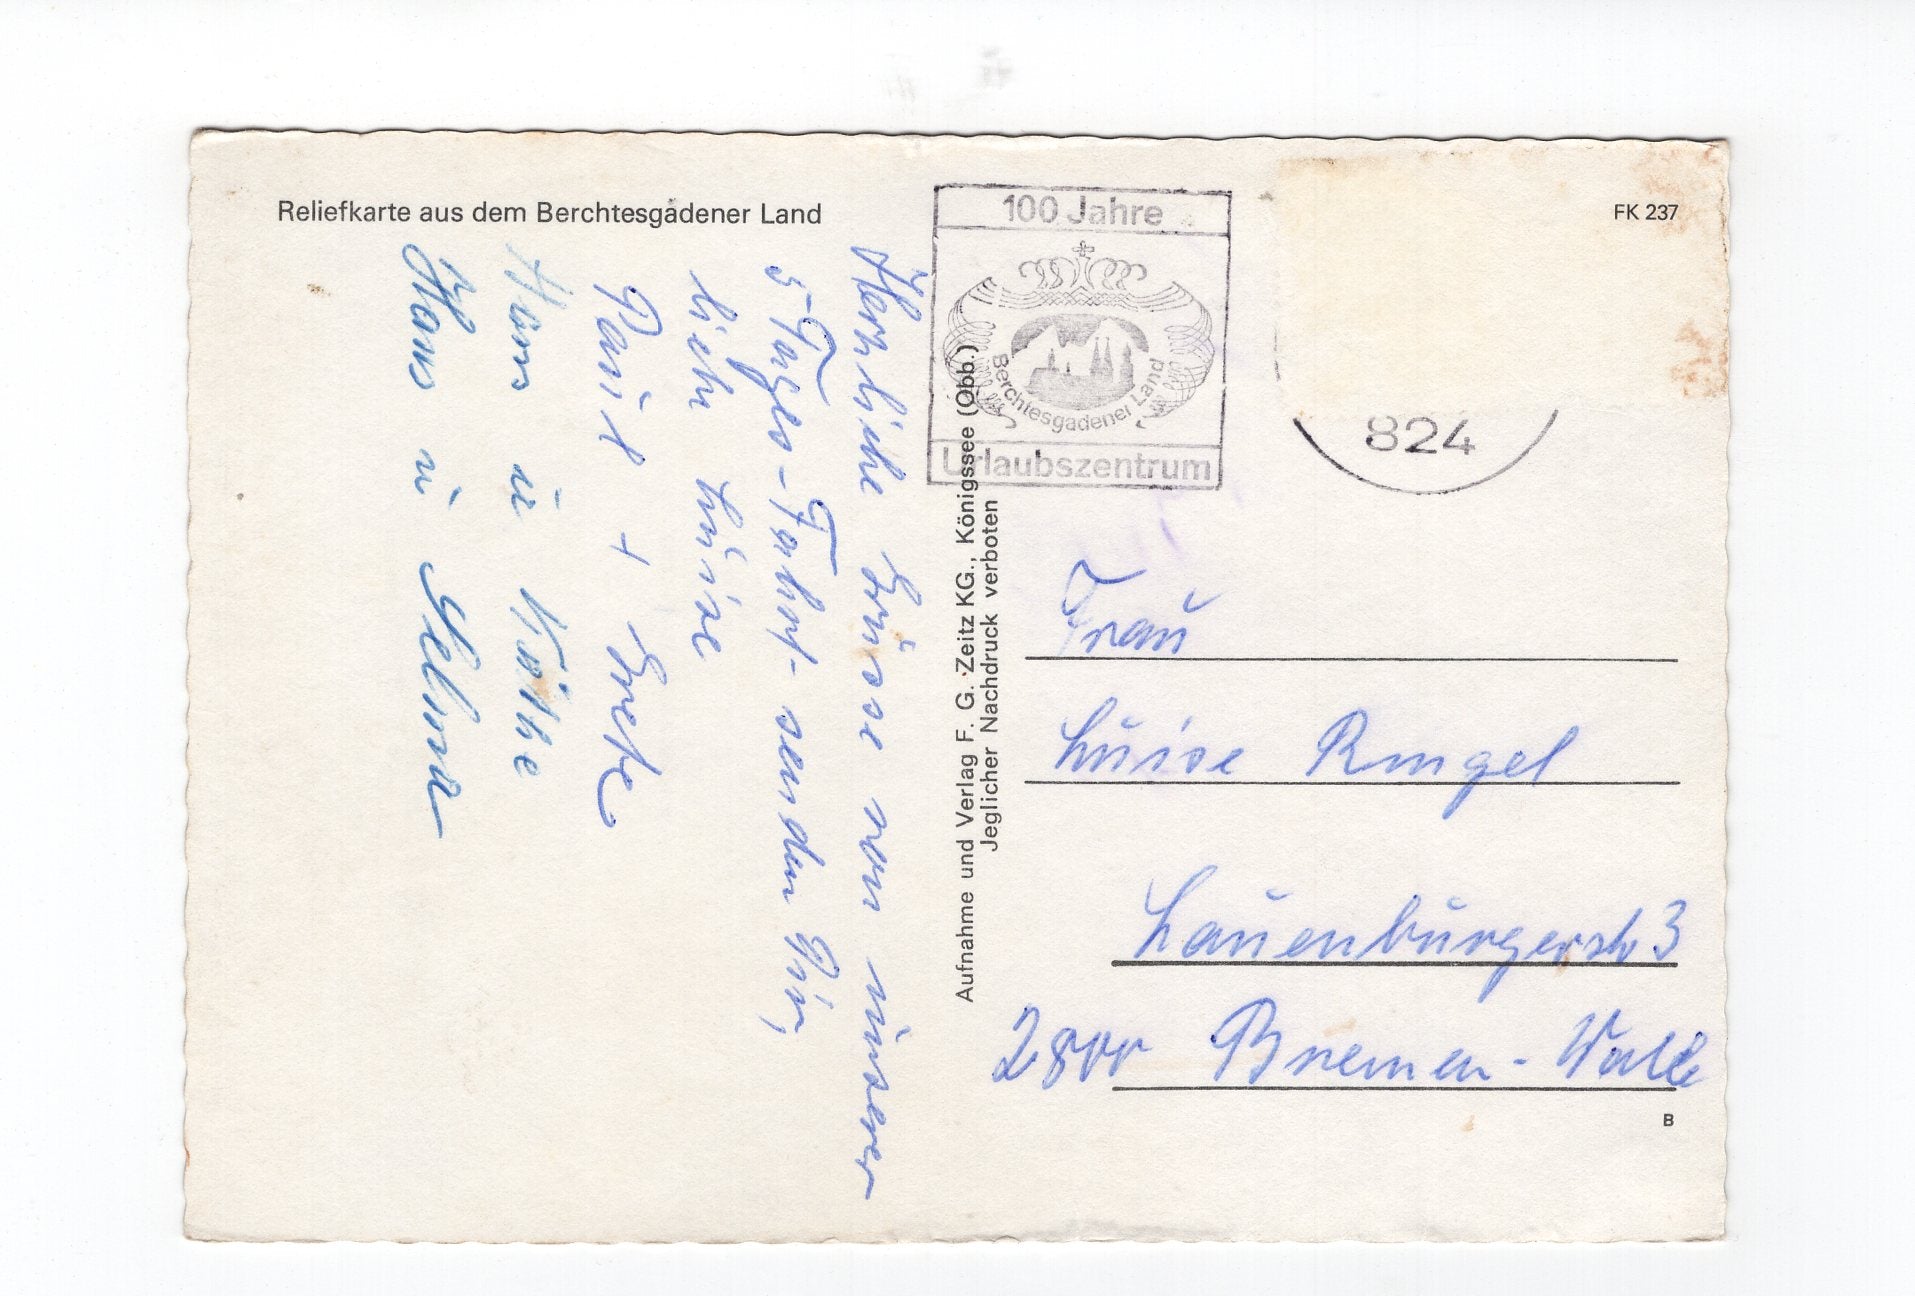 Reliefkarte aus dem Berchtesgadener Land
FK 237
100 Jahre
Berchtesgadener Land
Urlaubszentrum
824
Herzliche Grüsse von unserer
5-Tages-Fahrt- senden Dir,
lieb Luise
Paul + Grete
Hans u Käthe
Hans u Selma
Aufnahme und Verlag F. G. Zeitz KG., Königssee (Obb.)
Jeglicher Nachdruck verboten
Frau
Luise Ringel
Lauenburgerstr 3
2800 Bremen-Walle
B